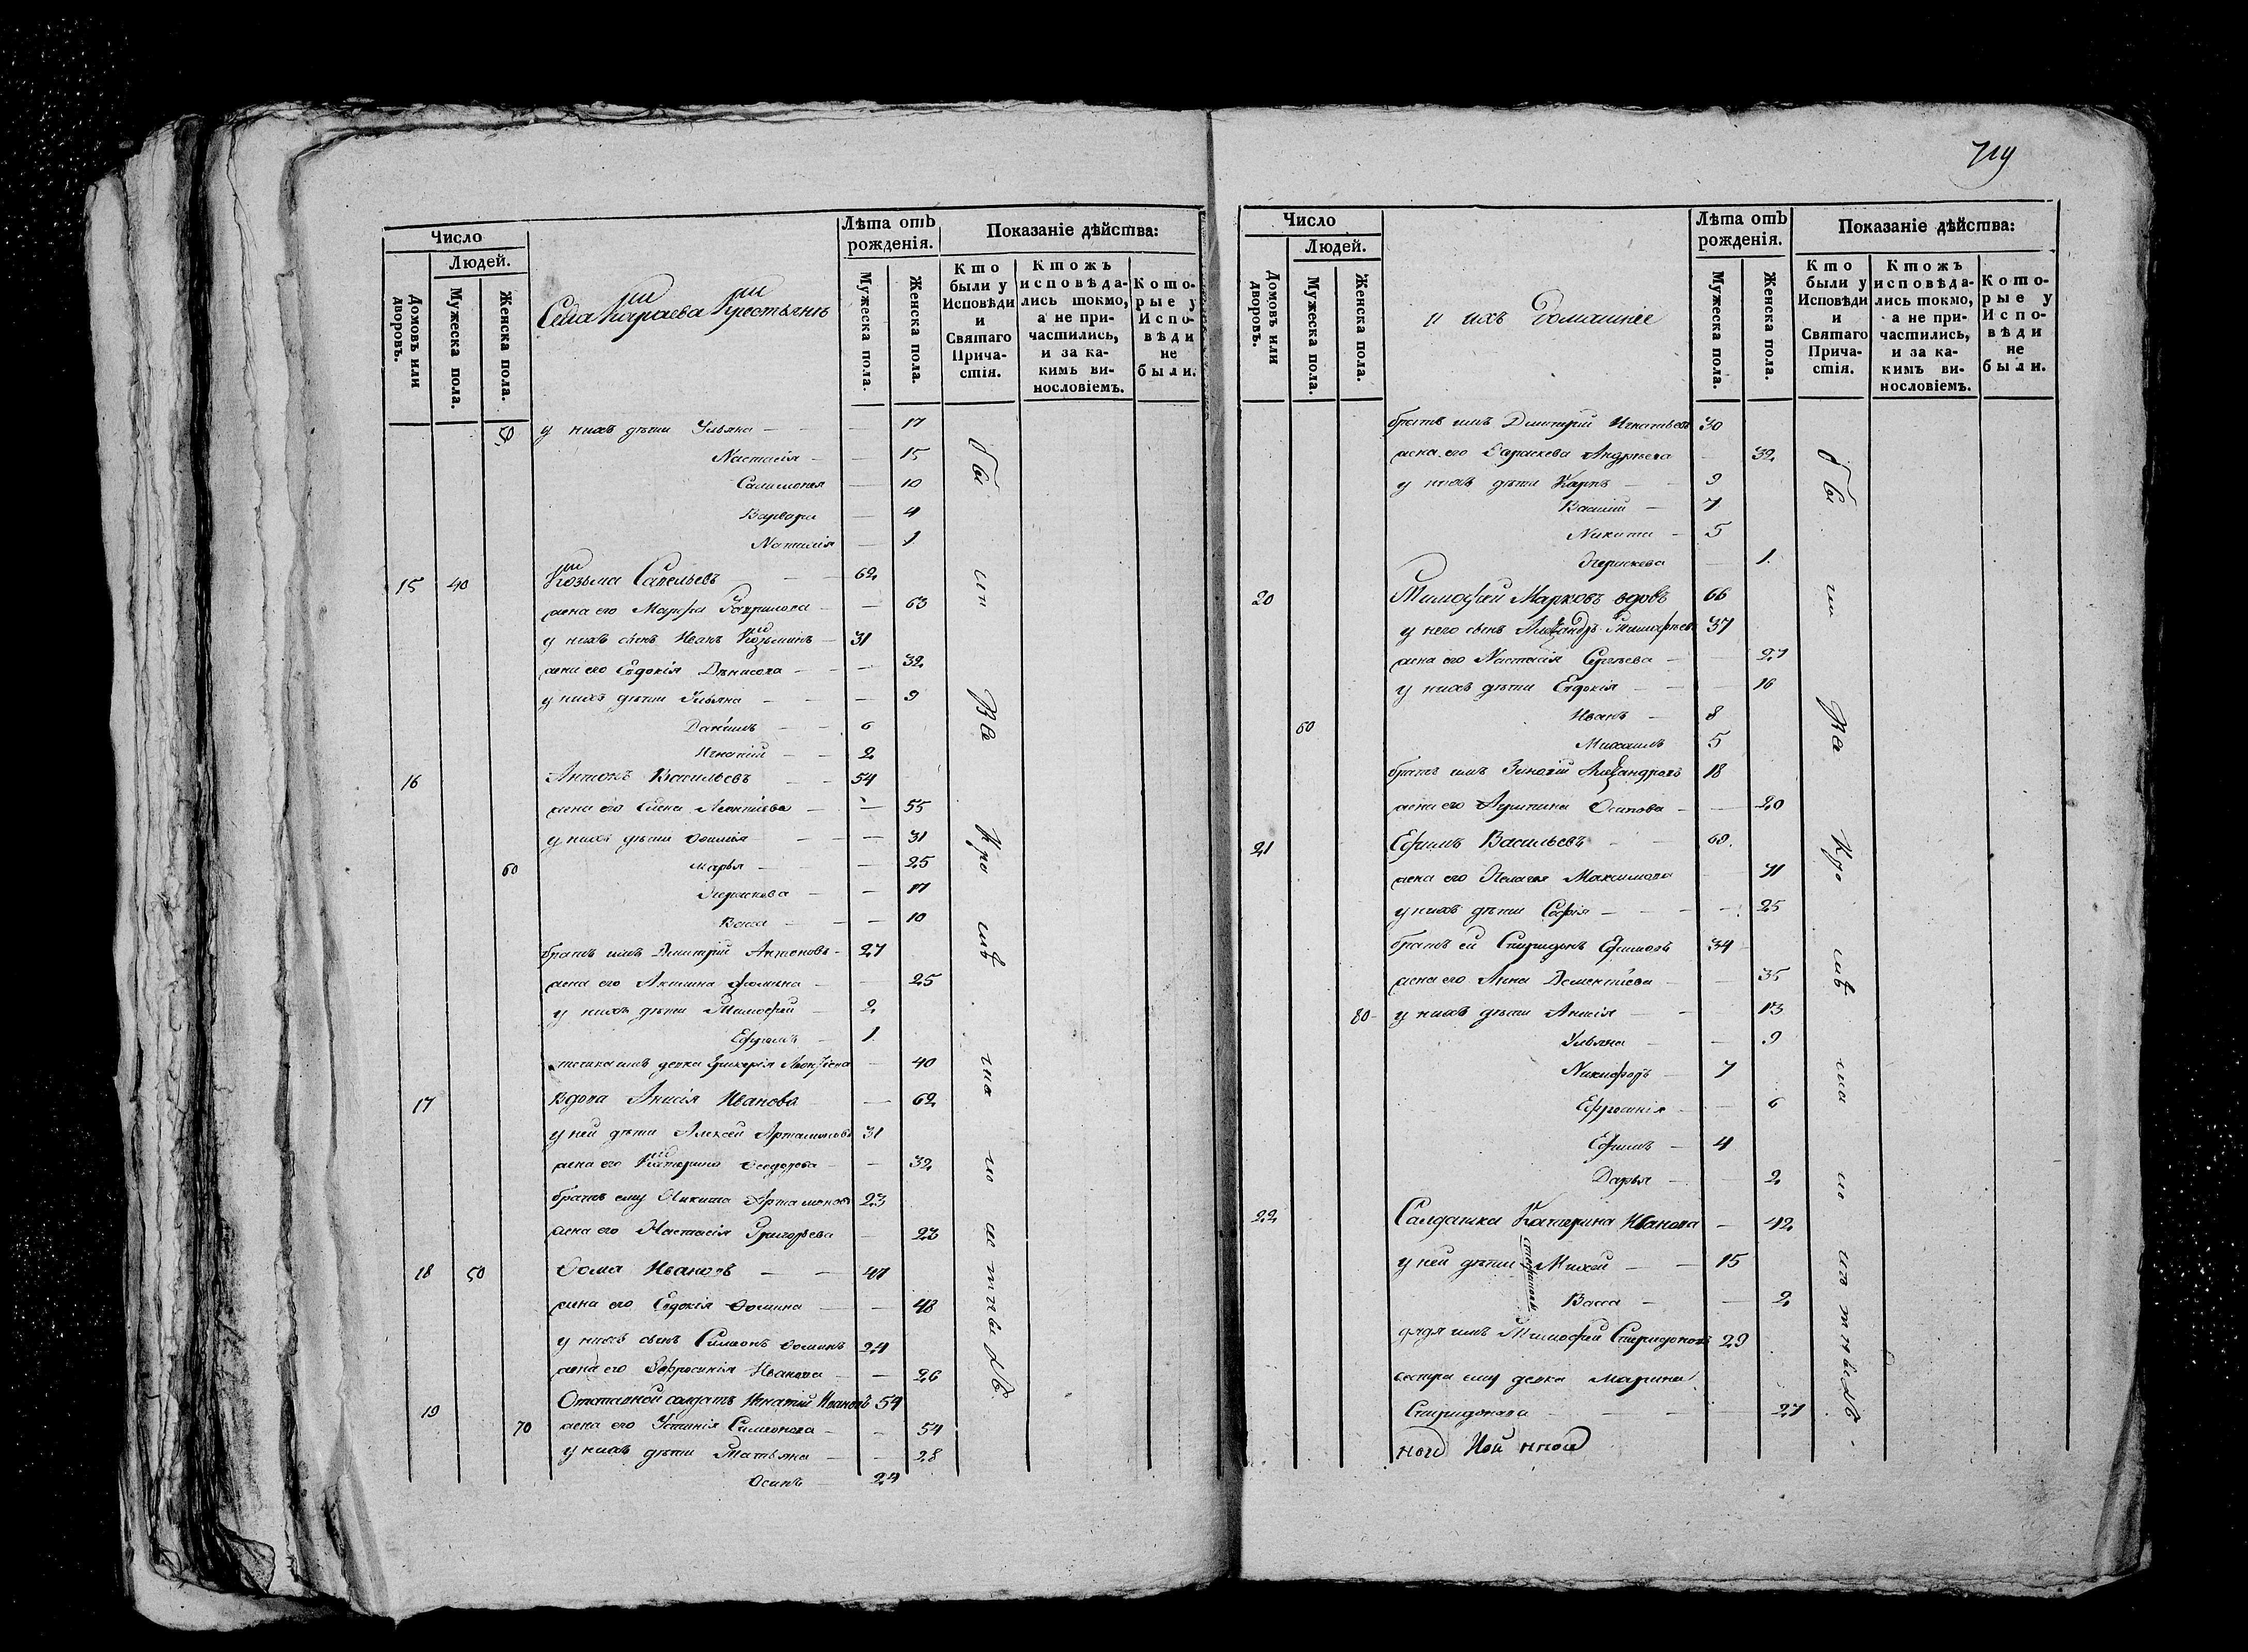 719
Число
Людей.
Домовъ или дворовъ.
Мужеска пола.
Женска пола.
Села Караева Крестьянъ
Лѣта отъ рожденія.
Мужеска пола.
Женска пола.
Показаніе дѣйства:
Кто были у Исповѣди и Святаго Причастія.
Ктожъ исповѣдались токмо, а не причастились, и за какимъ винословіемъ.
Которые у Исповѣди не были.
50 у нихъ дѣти Ульяна — 17
Настасія — 15
10
Варвара — 4
Наталія — 1
15 40 Козьма Савельевъ — 62
жена его Марфа Гаврилова — 63
у нихъ сынъ Иванъ Козьминъ — 31
жена его Евдокія Денисова — 32
у нихъ дѣти Ульяна — 9
Даніилъ — 6
Игнатій — 2
16 Антонъ Васильевъ — 54
жена его Елена Леонтіева — 55
у нихъ дѣти — 31
60 Марья — 25
Параскева — 17
Васса — 10
братъ имъ Дмитрій Антоновъ — 27
жена его Фомина — 25
у нихъ дѣти Тимофей — 2
Ефремъ — 1
девка Гликерія Леонтіева — 40
17 Вдова Анисія Иванова — 62
у ней дѣти Алексей Артамоновъ 31
жена его Катерина Ѳеодорова — 32
братъ ему Никита Артамоновъ 23
жена его Настасія Григорьева — 23
18 50 Ѳома Ивановъ — 47
жена его Евдокія Ѳомина — 48
у нихъ сынъ Симеонъ Ѳоминъ 24
жена его Ефросинія Иванова — 26
19 Отставной солдатъ Игнатій Ивановъ 54
70 жена его Устинія Симеонова — 54
у нихъ дѣти Татьяна — 28
Осипъ — 24
Число
Людей.
Домовъ или дворовъ.
Мужеска пола.
Женска пола.
и ихъ домашніе
Лѣта отъ рожденія.
Мужеска пола.
Женска пола.
Показаніе дѣйства:
Кто были у Исповѣди и Святаго Причастія.
Ктожъ исповѣдались токмо, а не причастились, и за какимъ винословіемъ.
Которые у Исповѣди не были.
братъ имъ Дмитрій Игнатьевъ 30
жена его Параскева Андреева — 32
у нихъ дѣти Карпъ — 9
Василій — 7
Никита — 5
Параскева — 1
20 Тимофей Марковъ вдовъ 66
у него сынъ Александръ Тимофеевъ 37
жена его Настасія Сергѣева — 27
у нихъ дѣти Евдокія — 16
60 Иванъ — 8
Михаилъ — 5
братъ имъ Зиновій Александровъ 18
жена его Осипова — 20
21 Ефимъ Васильевъ — 69
жена его Пелагея Максимова 71
у нихъ дѣти Софія — 25
братъ ей Спиридонъ Ефимовъ 34
жена его Анна Дементіева — 35
80 у нихъ дѣти Анисія — 13
Ульяна — 9
Никифоръ — 7
Ефросинія — 6
Ефимъ — 4
Дарья — 2
22 Салдатка Катерина Иванова — 42
у ней дѣти Михей — 15
Васса — 2
дядя имъ Тимофей Спиридоновъ 29
сестра ему девка Марина
Спиридонова — 27